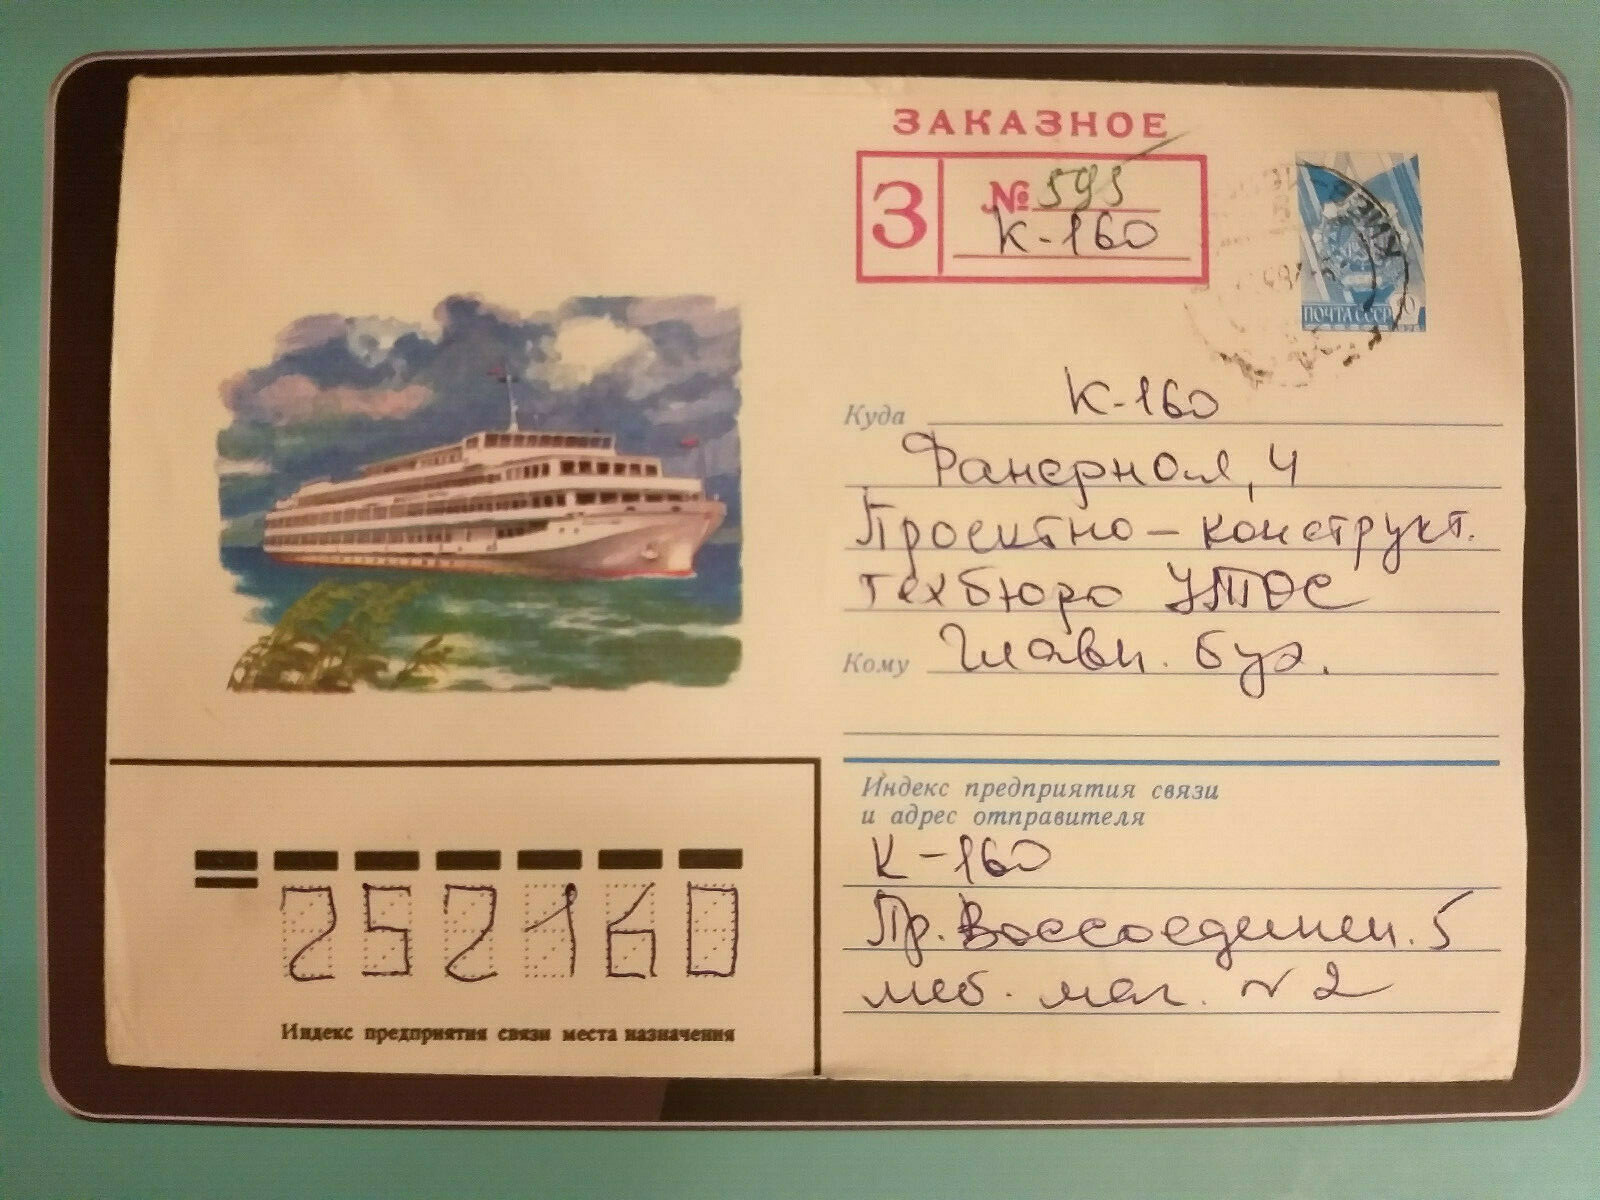 ЗАКАЗНОЕ
З
№ 595
К-160
ПОЧТА СССР
Куда К-160
Фанерная, 4
Проектно-конструкт.
техбюро УМТОС
Кому Главн. бух.
Индекс предприятия связи
и адрес отправителя
К-160
Пр. Воссоединен. 5
меб. маг. № 2
252160
Индекс предприятия связи места назначения